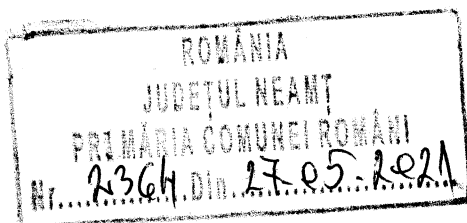 ROMÂNIA
JUDEȚUL NEAMȚ
PRIMĂRIA COMUNEI ROMÂNI
Nr. 2364 Din 27.05.2021